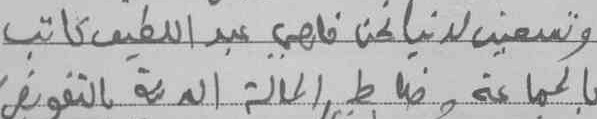 وتسعين لدينا نحن فاهمي عبد اللطيف كاتب
بالجماعة وضابط الحالة المدنية بالتفويض